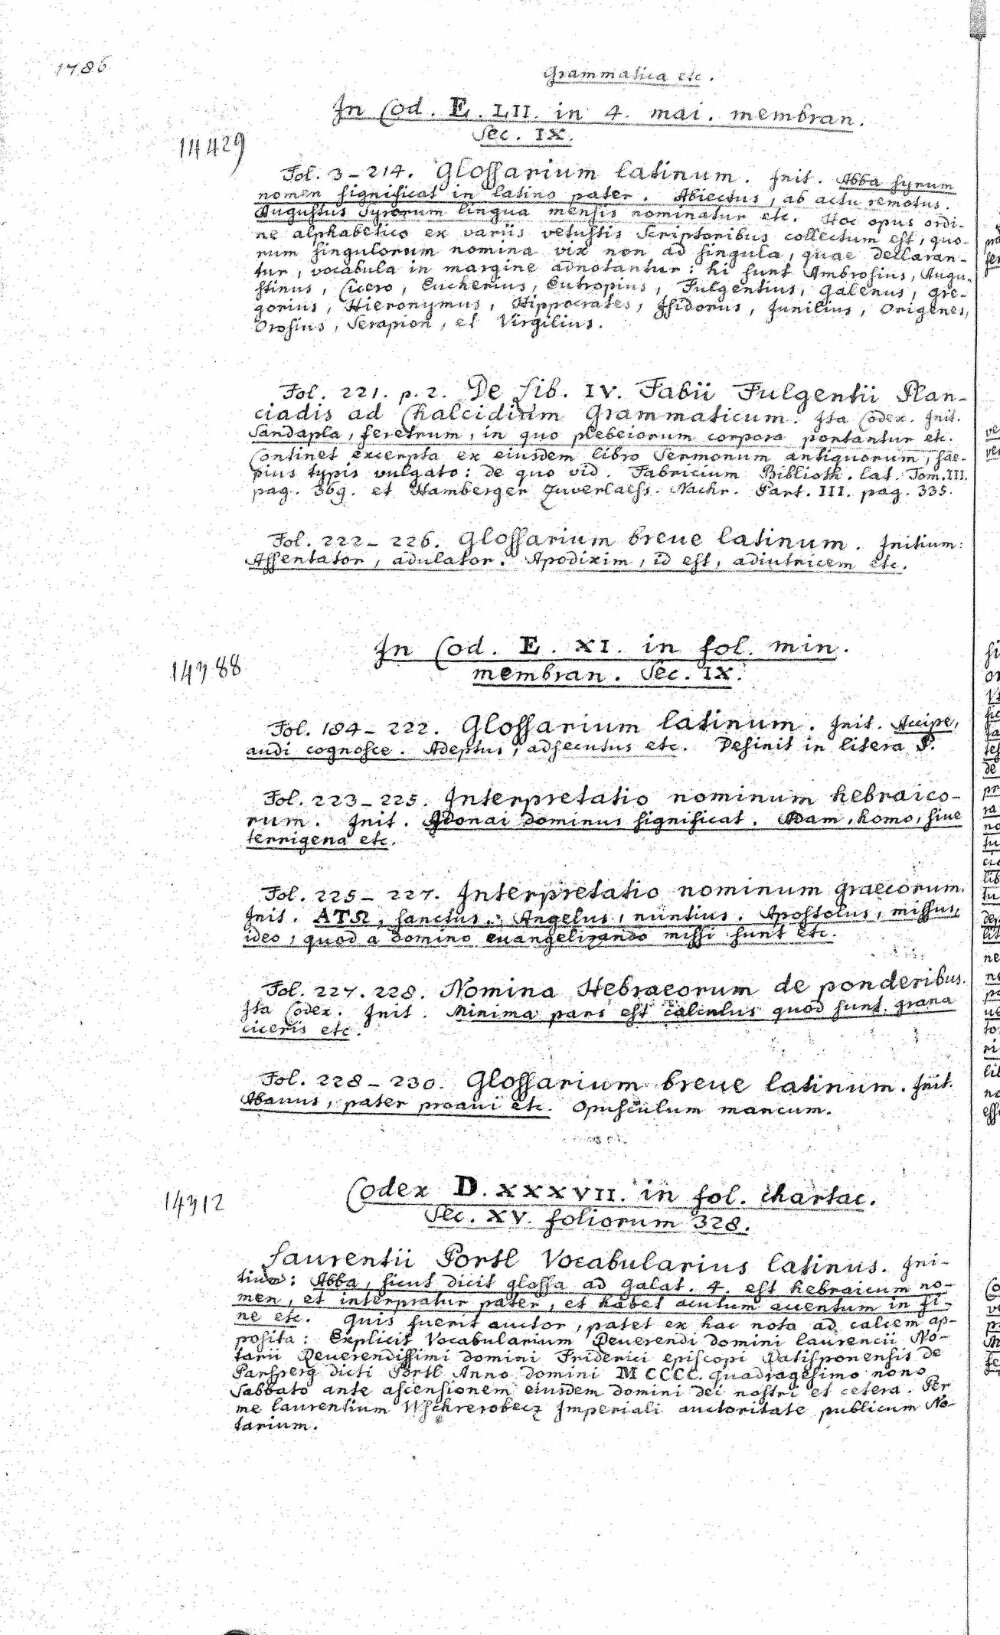 1786
Grammatica etc.
In Cod. E. LII. in 4. mai. membran.
Sec. IX.
14429
Fol. 3-214. Glossarium latinum. Init. Abba syrum
nomen significat in latino pater. Abiectus, ab actu remotus.
Augustus Syrorum lingua mensis nominatur etc. Hoc opus ordi-
ne alphabetico ex variis vetustis Scriptoribus collectum est, quo-
rum singulorum nomina vix non ad singula, quae declaran-
tur, vocabula in margine adnotantur: hi sunt Ambrosius, Augu-
stinus, Cicero, Eucherius, Eutropius, Fulgentius, Galenus, Gre-
gorius, Hieronymus, Hippocrates, Isidorus, Junilius, Origenes,
Orosius, Serapion, et Virgilius.
Fol. 221. p. 2. De Lib. IV. Fabii Fulgentii Plan-
ciadis ad Chalcidium Grammaticum. Ita Codex. Init.
Sandapla, feretrum, in quo plebeiorum corpora portantur etc.
Continet excerpta ex eiusdem libro Sermonum antiquorum, sae-
pius typis vulgato: de quo vid. Fabricium Biblioth. lat. Tom. III.
pag. 369. et Hamberger Zuverlaess. Nachr. Part. III. pag. 335.
Fol. 222-226. Glossarium breue latinum. Initium:
Assentator, adulator. Apodixim, id est, adiutricem etc.
In Cod. E. XI. in fol. min.
membran. Sec. IX.
14388
Fol. 184-222. Glossarium latinum. Init. Accipe,
audi cognosce. Adeptus, adsecutus etc. Definit in litera P.
Fol. 223-225. Interpretatio nominum hebraico-
rum. Init. Adonai dominus significat. Adam, homo, siue
terrigena etc.
Fol. 225-227. Interpretatio nominum graecorum.
Init. ATΩ, sanctus. Angelus, nuntius. Apostolus, missus,
ideo, quod a domino euangelizando missi sunt etc.
Fol. 227. 228. Nomina Hebraeorum de ponderibus.
Ita Codex. Init. Minima pars est calculus quod sunt grana
ciceris etc.
Fol. 228-230. Glossarium breue latinum. Init.
Abauus, pater proaui etc. Opusculum mancum.
Codex D. XXXVII. in fol. chartac.
Sec. XV. foliorum 328.
14312
Laurentii Portl Vocabularius latinus. Ini-
tium: Abba, sicut dicit glossa ad Galat. 4. est hebraicum no-
men, et interpratur pater, et habet acutum accentum in fi-
ne etc. Quis fuerit auctor, patet ex hac nota ad calcem ap-
posita: Explicit Vocabularium Reuerendi domini laurencii No-
tarii Reuerendissimi domini Friderici episcopi Ratisponensis de
Parsperg dicti Portl Anno domini MCCCC. quadragesimo nono
Sabbato ante ascensionem eiusdem domini dei nostri et cetera. Per
me laurentium Imperiali auctoritate publicum No-
tarium.